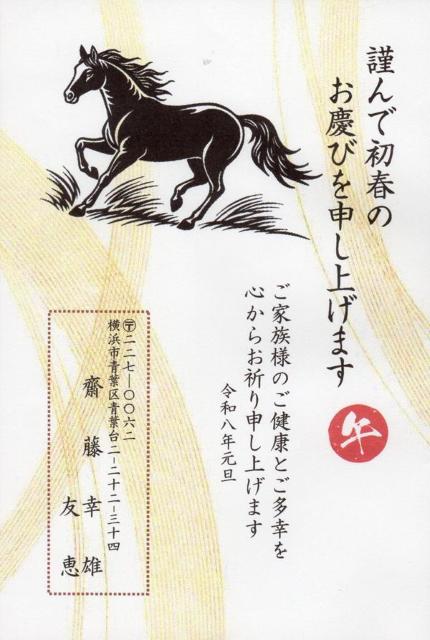 謹んで初春の
お慶びを申し上げます
午
ご家族様のご健康とご多幸を
心からお祈り申し上げます
令和八年元旦
〒二二七―〇〇六二
横浜市青葉区青葉台二−二十二−三十四
齋藤幸雄
友恵